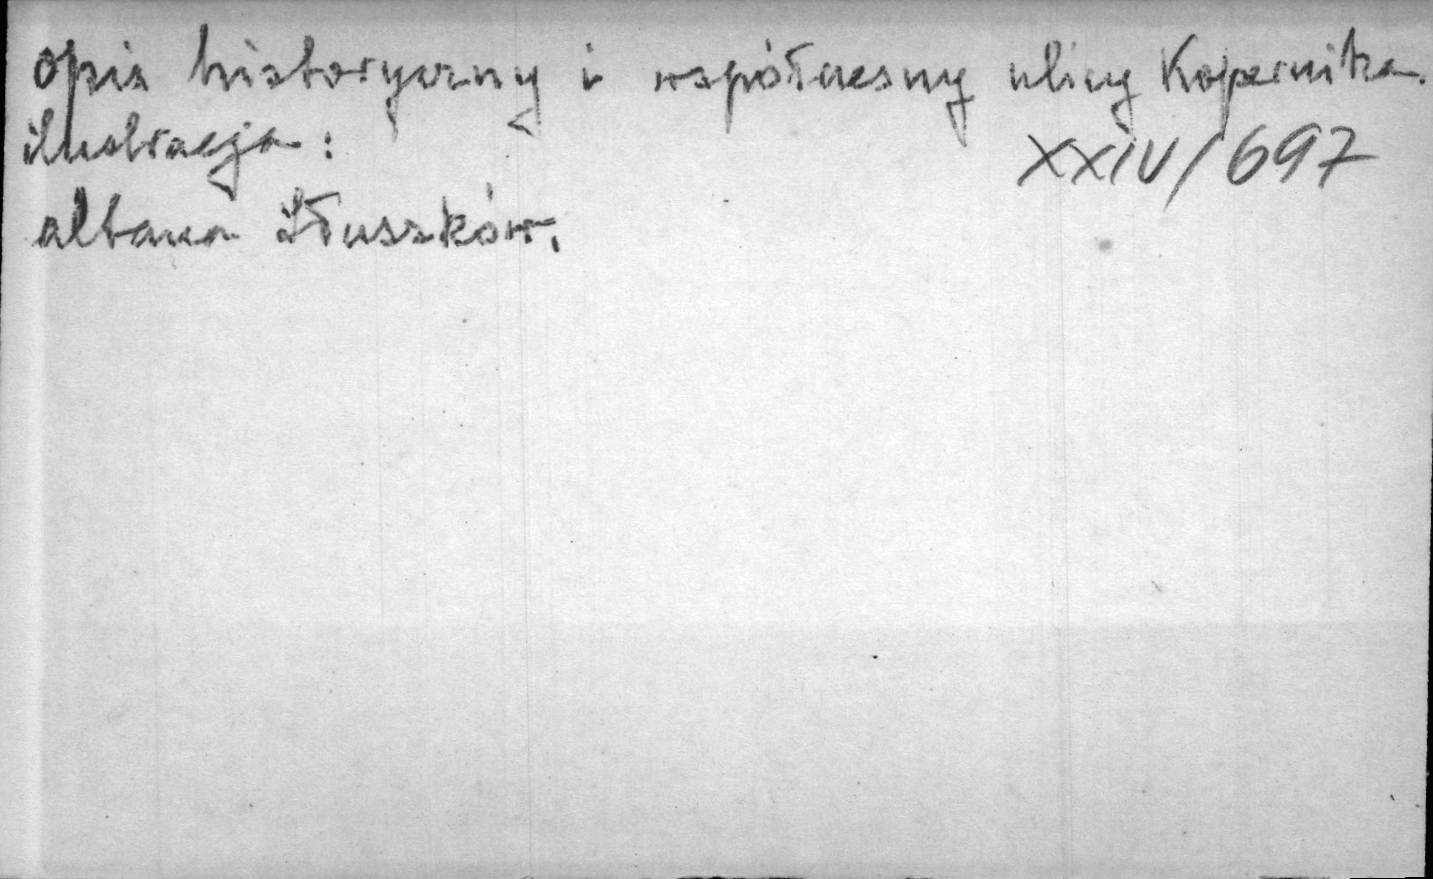 opis historyczny i współczesny ulicy Kopernika.
ilustracja:
XXIV/697
altana Żłuszków.